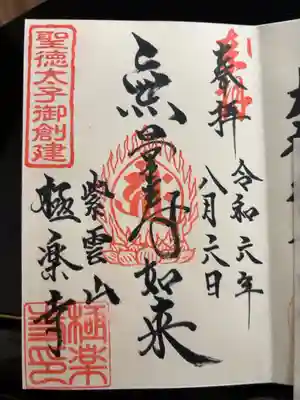 奉拝
令和六年
八月六日
無量寿如来
紫雲山
極楽寺
聖徳太子御創建
極楽
寺印